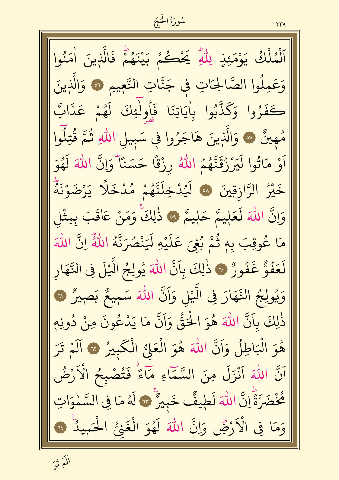 سُورَةُ الْحَجِّ
٣٣٨
اَلْمُلْكُ يَوْمَئِذٍ لِلّٰهِ يَحْكُمُ بَيْنَهُمْ فَالَّذِينَ اٰمَنُوا
وَعَمِلُوا الصَّالِحَاتِ فِى جَنَّاتِ النَّعِيمِ ﴿٥٦﴾ وَالَّذِينَ
كَفَرُوا وَكَذَّبُوا بِاٰيَاتِنَا فَاُولٰٓئِكَ لَهُمْ عَذَابٌ
مُهِينٌ ﴿٥٧﴾ وَالَّذِينَ هَاجَرُوا فِى سَبِيلِ اللّٰهِ ثُمَّ قُتِلُٓوا
اَوْ مَاتُوا لَيَرْزُقَنَّهُمُ اللّٰهُ رِزْقًا حَسَنًا وَاِنَّ اللّٰهَ لَهُوَ
خَيْرُ الرَّازِقِينَ ﴿٥٨﴾ لَيُدْخِلَنَّهُمْ مُدْخَلًا يَرْضَوْنَهُ
وَاِنَّ اللّٰهَ لَعَلِيمٌ حَلِيمٌ ﴿٥٩﴾ ذٰلِكَ وَمَنْ عَاقَبَ بِمِثْلِ
مَا عُوقِبَ بِهِ ثُمَّ بُغِىَ عَلَيْهِ لَيَنْصُرَنَّهُ اللّٰهُ اِنَّ اللّٰهَ
لَعَفُوٌّ غَفُورٌ ﴿٦٠﴾ ذٰلِكَ بِاَنَّ اللّٰهَ يُولِجُ الَّيْلَ فِى النَّهَارِ
وَيُولِجُ النَّهَارَ فِى الَّيْلِ وَاَنَّ اللّٰهَ سَمِيعٌ بَصِيرٌ ﴿٦١﴾
ذٰلِكَ بِاَنَّ اللّٰهَ هُوَ الْحَقُّ وَاَنَّ مَا يَدْعُونَ مِنْ دُونِهِ
هُوَ الْبَاطِلُ وَاَنَّ اللّٰهَ هُوَ الْعَلِىُّ الْكَبِيرُ ﴿٦٢﴾ اَلَمْ تَرَ
اَنَّ اللّٰهَ اَنْزَلَ مِنَ السَّمَٓاءِ مَٓاءً فَتُصْبِحُ الْاَرْضُ
مُخْضَرَّةً اِنَّ اللّٰهَ لَطِيفٌ خَبِيرٌ ﴿٦٣﴾ لَهُ مَا فِى السَّمٰوَاتِ
وَمَا فِى الْاَرْضِ وَاِنَّ اللّٰهَ لَهُوَ الْغَنِىُّ الْحَمِيدُ ﴿٦٤﴾
اَلَمْ تَرَ